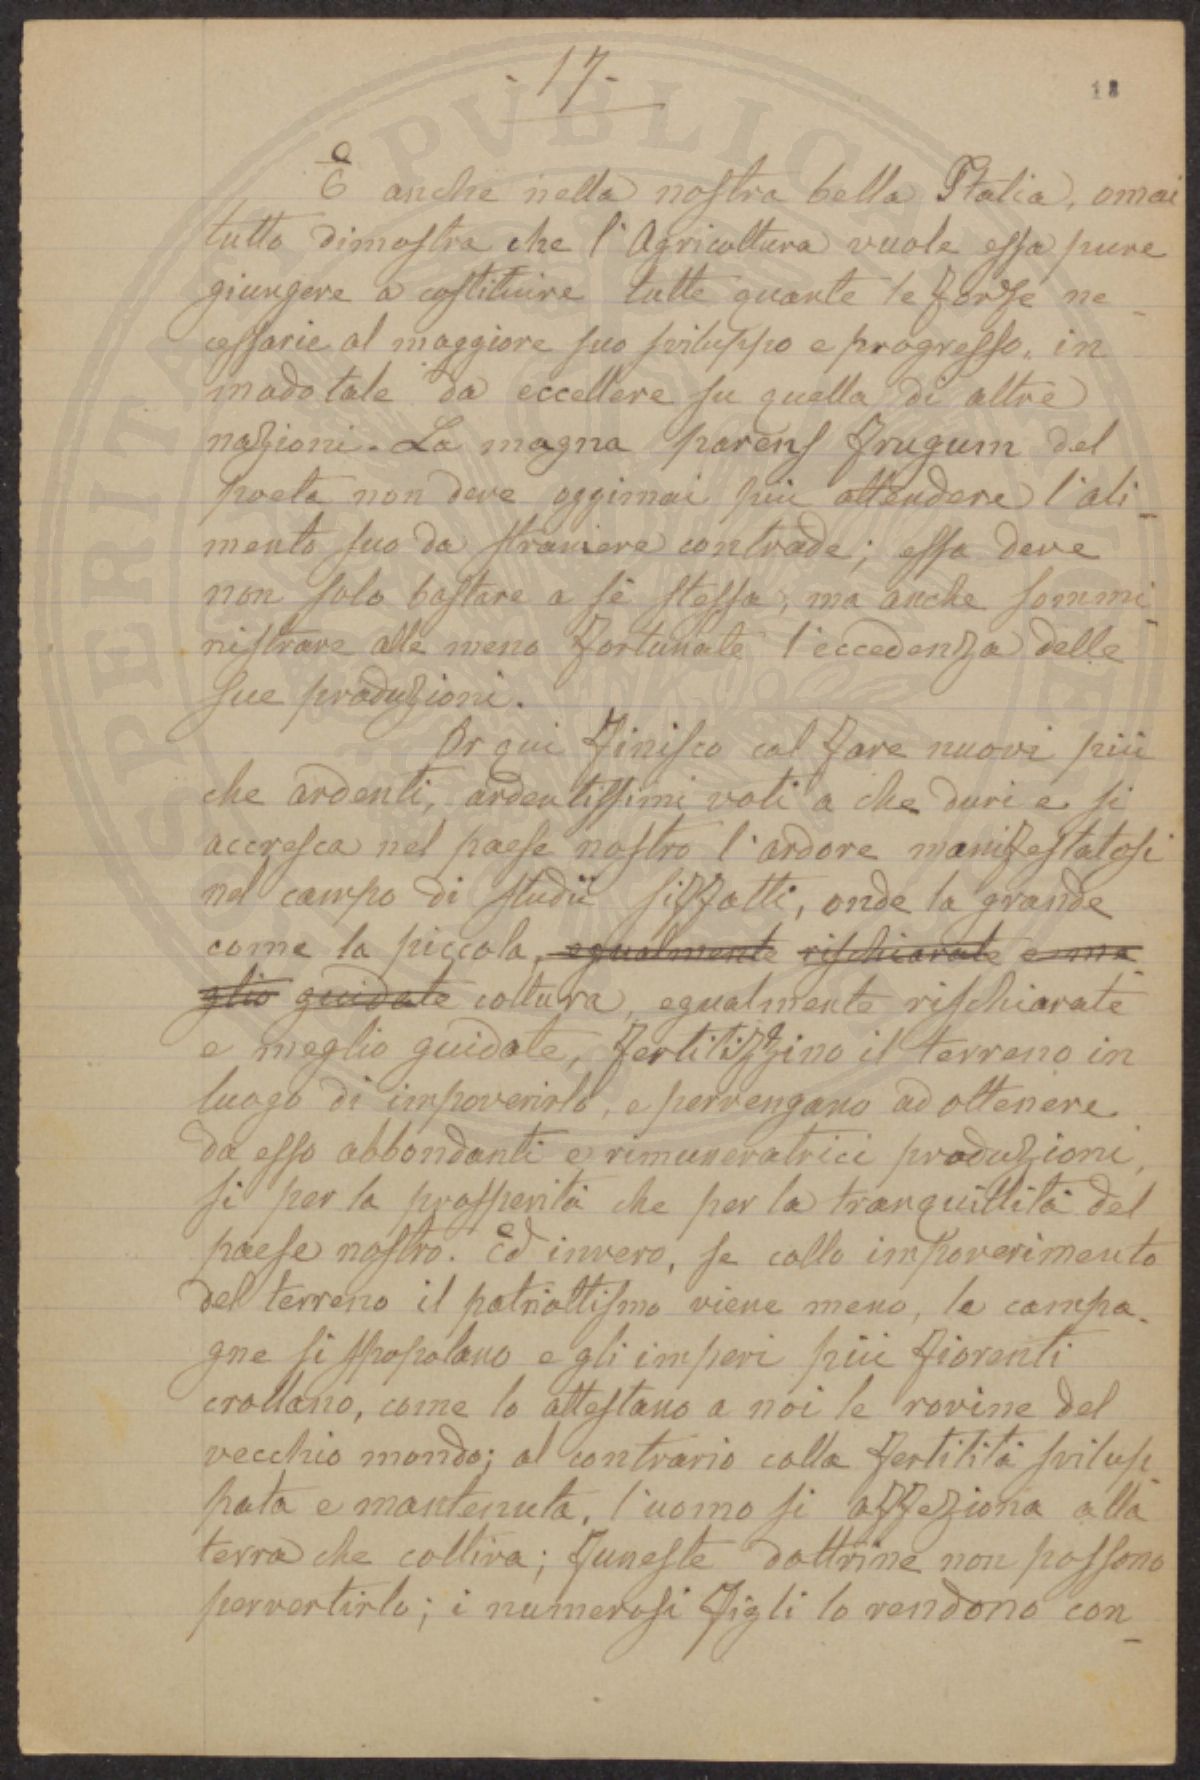 - 17 -
18
E anche nella nostra bella Italia, omai
tutto dimostra che l'Agricoltura vuole essa pure
giungere a costituire tutte quante le forze ne_
cessarie al maggiore suo sviluppo e progresso, in
modo tale da eccellere su quella di altre
nazioni. La magna parens frugum del
poeta non deve oggimai più attendere l'ali_
mento suo da straniere contrade; essa deve
non solo bastare a sè stessa, ma anche sommi_
nistrare alle meno fortunate l'eccedenza delle
sue produzioni.
Or qui finisco col fare nuovi più
che ardenti, ardentissimi voti a che duri e si
accresca nel paese nostro l'ardore manifestatosi
nel campo di studii siffatti, onde la grande
come la piccola, egualmente rischiarate e me
glio guidate coltura, egualmente rischiarate
e meglio guidate, fertilizzino il terreno in
luogo di impoverirlo, e pervengano ad ottenere
da esso abbondanti e rimuneratrici produzioni,
si per la prosperità che per la tranquillità del
paese nostro. Ed invero, se collo impoverimento
del terreno il patriottismo viene meno, le campa_
gne si spopolano e gli imperi più fiorenti
crollano, come lo attestano a noi le rovine del
vecchio mondo; al contrario colla fertilità svilup_
pata e mantenuta, l'uomo si affeziona alla
terra che coltiva; funeste dottrine non possono
pervertirlo; i numerosi figli lo rendono con_
SPERITATI PVBLICAE